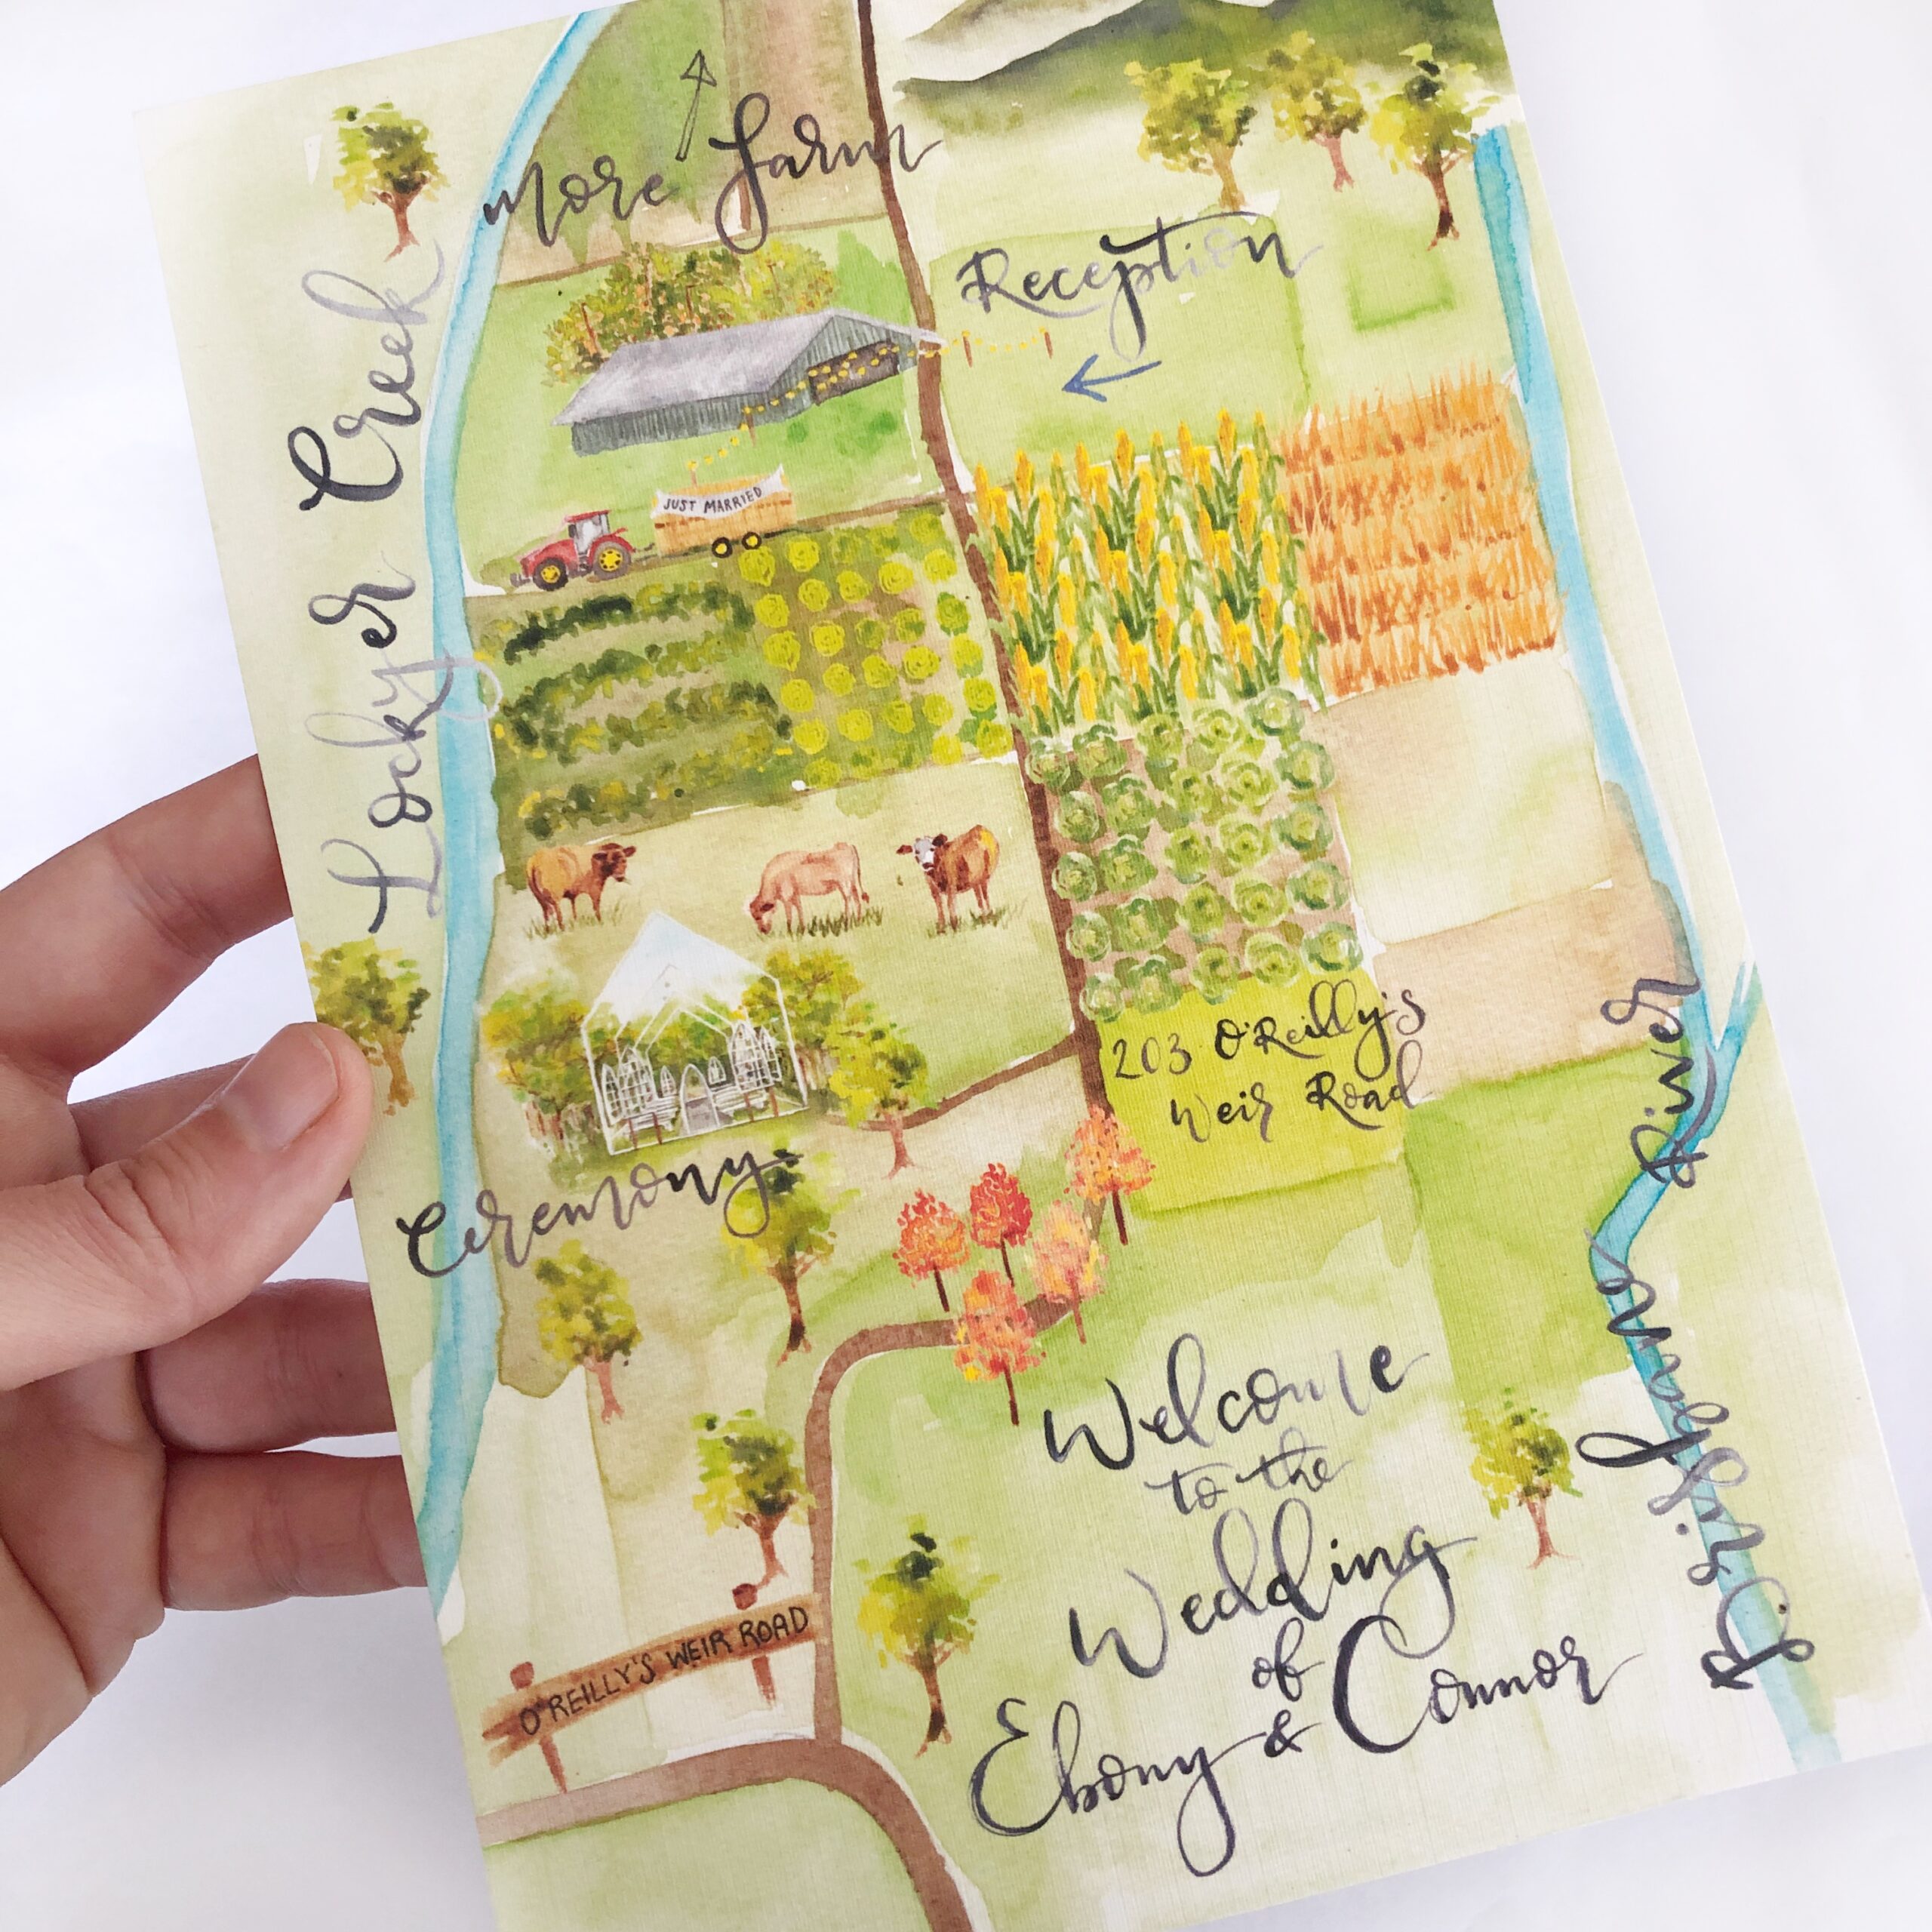 More Farm
Reception
Lockyer Creek
JUST MARRIED
203 O'Reilly's
Weir Road
Ceremony
Brisbane River
Welcome
to the
Wedding
of
Ebony & Connor
O'REILLY'S WEIR ROAD